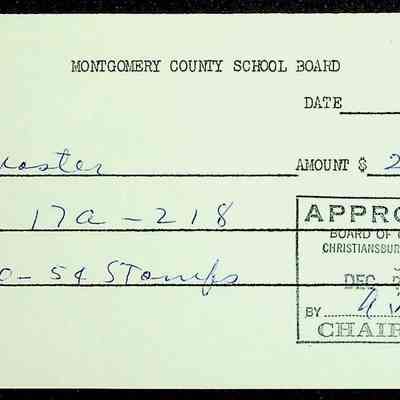 MONTGOMERY COUNTY SCHOOL BOARD
DATE
master AMOUNT $ 2
17a-218
0-5¢ Stamps
APPRO
BOARD OF
CHRISTIANSBUR
DEC
BY
CHAIR